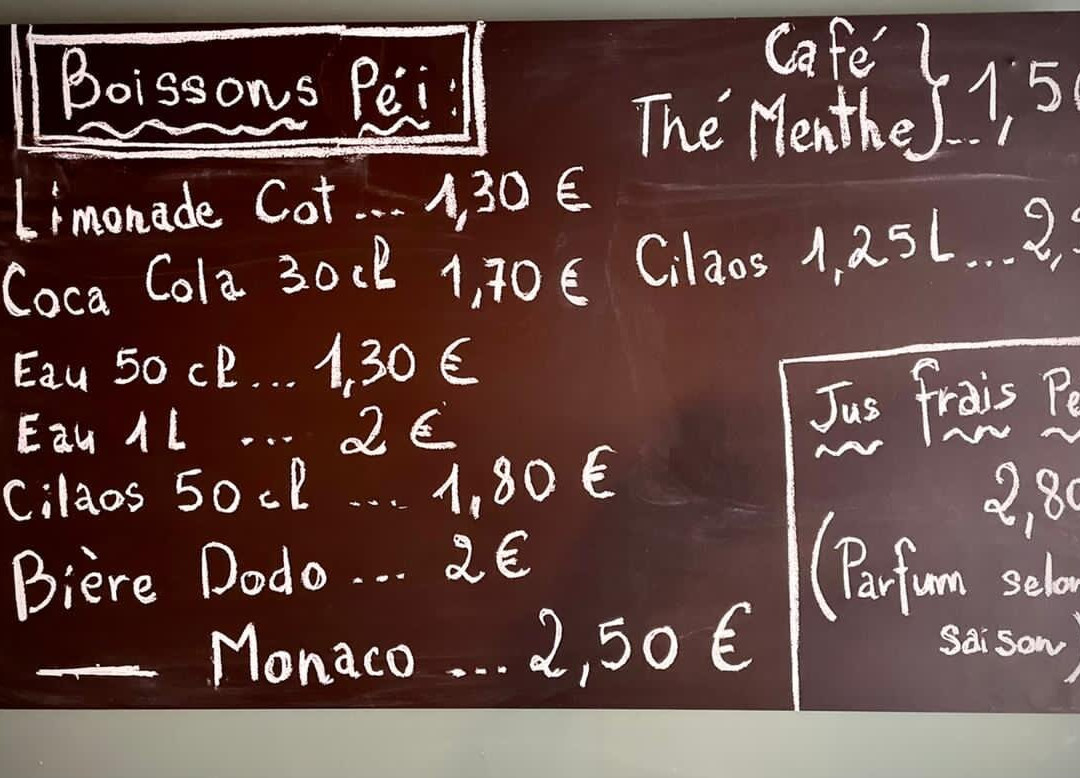 Boissons Péi:
Limonade Cot ... 1,30 €
Coca Cola 30cl 1,70 €
Eau 50 cl... 1,30 €
Eau 1L ... 2 €
Cilaos 50cl ... 1,80 €
Bière Dodo ... 2€
— Monaco ... 2,50 €
Café
Thé Menthe } ... 1,50
Cilaos 1,25L ... 2,
Jus frais Pe
2,80
(Parfum selon
saison)